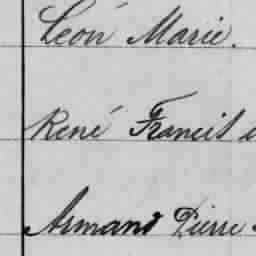 Léon Marie.
René Francis
Armand Pierre